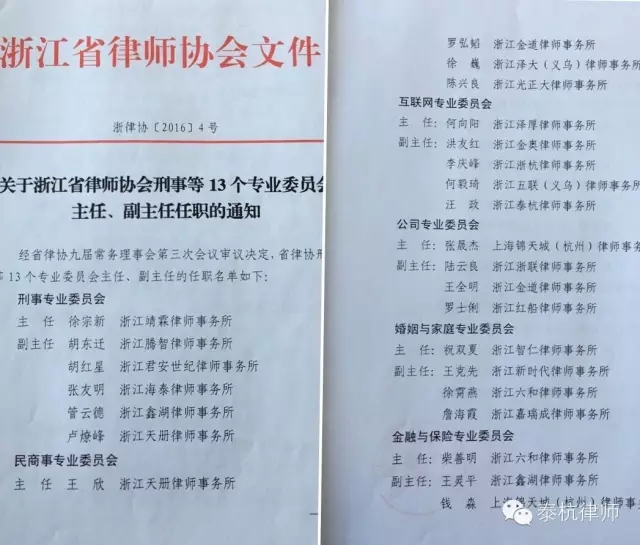 浙江省律师协会文件
浙律协〔2016〕4号
关于浙江省律师协会刑事等13个专业委员会
主任、副主任任职的通知
经省律协九届常务理事会第三次会议审议决定,省律协刑
等13个专业委员会主任、副主任的任职名单如下:
刑事专业委员会
主 任 徐宗新 浙江靖霖律师事务所
副主任 胡东迁 浙江腾智律师事务所
胡红星 浙江君安世纪律师事务所
张友明 浙江海泰律师事务所
管云德 浙江鑫湖律师事务所
卢燎峰 浙江天册律师事务所
民商事专业委员会
主 任 王 欣 浙江天册律师事务所
罗弘韬 浙江金道律师事务所
徐 巍 浙江泽大(义乌)律师事务所
陈兴良 浙江光正大律师事务所
互联网专业委员会
主 任:何向阳 浙江泽厚律师事务所
副主任:洪友红 浙江金奥律师事务所
李庆峰 浙江浙杭律师事务所
何毅琦 浙江五联(义乌)律师事务所
汪 政 浙江泰杭律师事务所
公司专业委员会
主 任:张晟杰 上海锦天城(杭州)律师事务
副主任:陆云良 浙江浙联律师事务所
王全明 浙江金道律师事务所
罗士俐 浙江红船律师事务所
婚姻与家庭专业委员会
主 任:祝双夏 浙江智仁律师事务所
副主任:王克先 浙江新时代律师事务所
徐霄燕 浙江六和律师事务所
詹海霞 浙江嘉瑞成律师事务所
金融与保险专业委员会
主 任:柴善明 浙江六和律师事务所
副主任:王灵平 浙江鑫湖律师事务所
钱 淼 上海锦天城(杭州)律师事务
泰杭律师